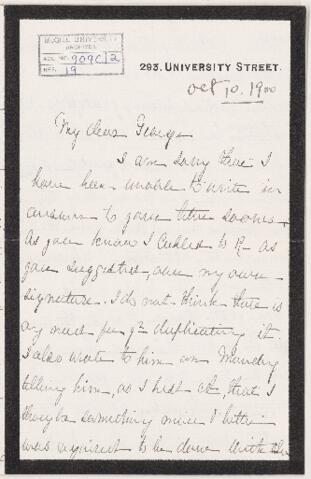 McGILL UNIVERSITY
ARCHIVES
ACC. NO. 909C/2
REF. 19
293, UNIVERSITY STREET.
Oct 10. 1900
My dear George
I am sorry that I
have been unable to write in
answer to your letter sooner.
As you know I cabled to R- as
you suggested, over my own
signature. I do not think there is
any need for yr duplicating it.
I also wrote to him on Monday
telling him, as I had, that I
thought something more
was required to be done with the